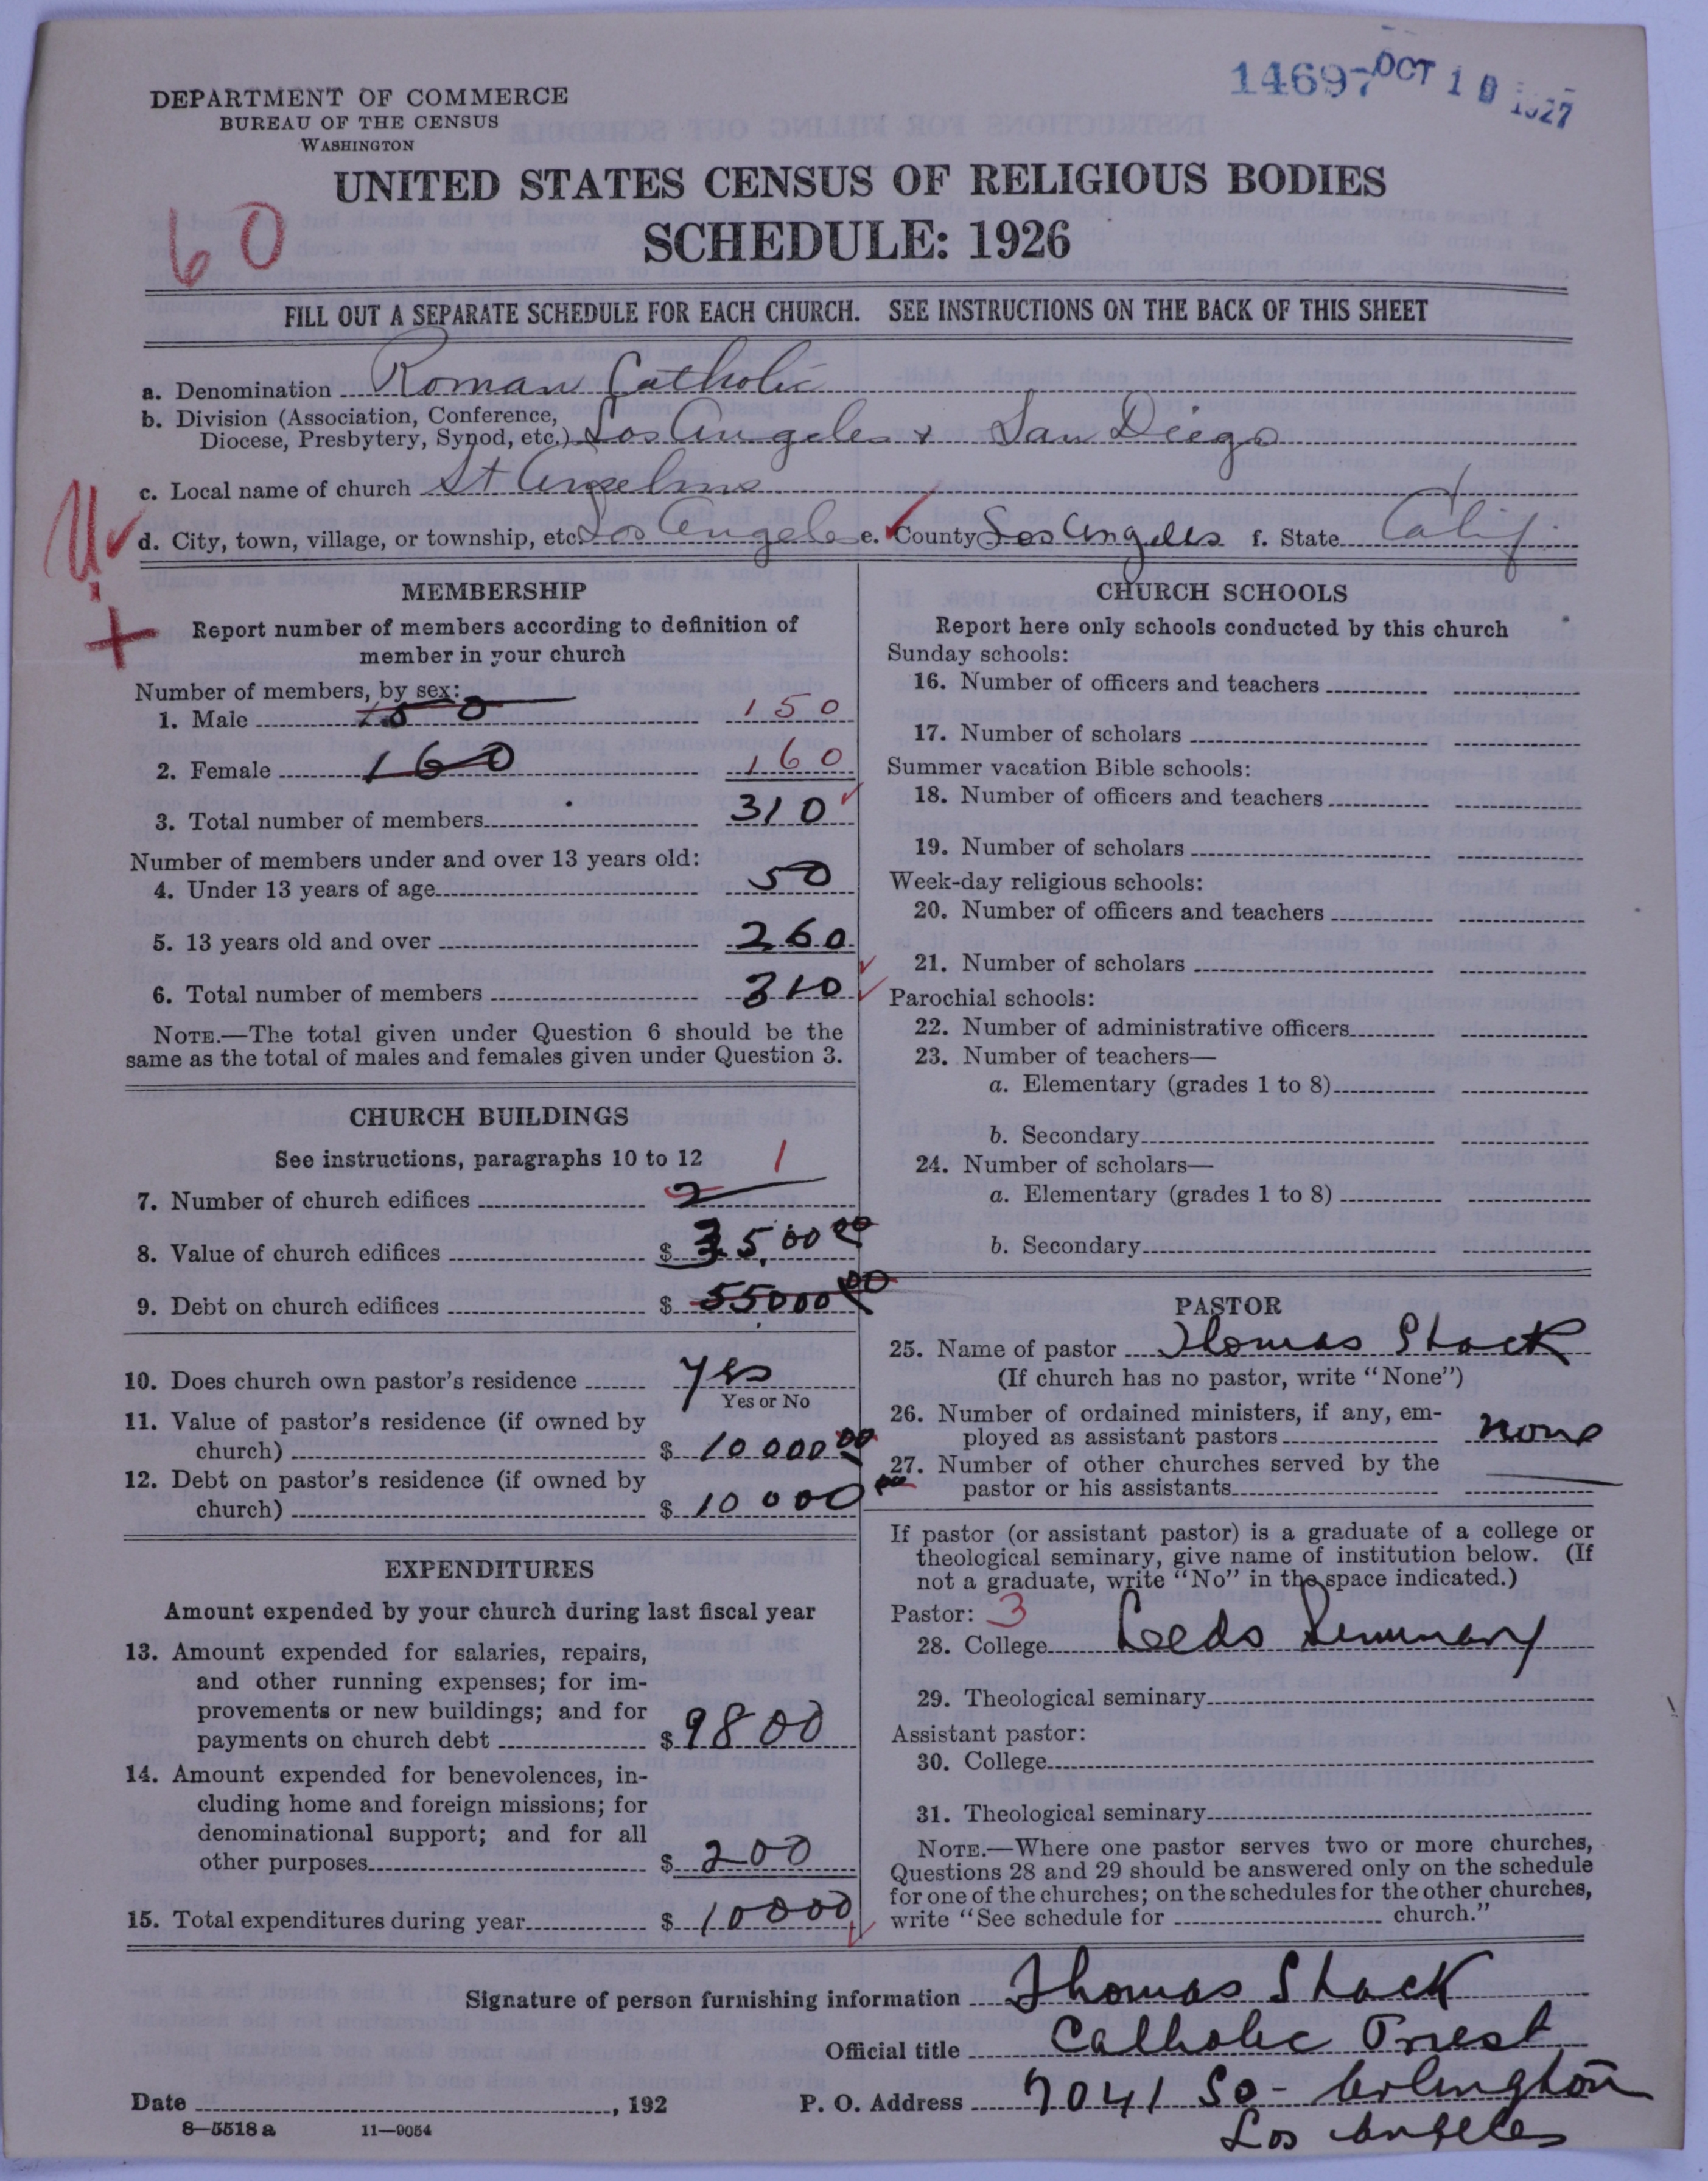 14697 OCT 10 1927
DEPARTMENT OF COMMERCE
BUREAU OF THE CENSUS
WASHINGTON
UNITED STATES CENSUS OF RELIGIOUS BODIES
SCHEDULE: 1926
60
FILL OUT A SEPARATE SCHEDULE FOR EACH CHURCH. SEE INSTRUCTIONS ON THE BACK OF THIS SHEET
a. Denomination Roman Catholic
b. Division (Association, Conference,
Diocese, Presbytery, Synod, etc.) Los Angeles & San Diego
c. Local name of church St Anselms
d. City, town, village, or township, etc. Los Angeles e. County Los Angeles f. State Calif
MEMBERSHIP
Report number of members according to definition of
member in your church
Number of members, by sex:
1. Male 150 150
2. Female 160 160
3. Total number of members 310
Number of members under and over 13 years old:
4. Under 13 years of age 50
5. 13 years old and over 260
6. Total number of members 310
NOTE.—The total given under Question 6 should be the
same as the total of males and females given under Question 3.
CHURCH BUILDINGS
See instructions, paragraphs 10 to 12 1
7. Number of church edifices 2
8. Value of church edifices $ 35,000
9. Debt on church edifices $ 55000 00
10. Does church own pastor's residence yes
Yes or No
11. Value of pastor's residence (if owned by
church) $ 10000 00
12. Debt on pastor's residence (if owned by
church) $ 10000 00
EXPENDITURES
Amount expended by your church during last fiscal year
13. Amount expended for salaries, repairs,
and other running expenses; for im-
provements or new buildings; and for
payments on church debt $ 9800
14. Amount expended for benevolences, in-
cluding home and foreign missions; for
denominational support; and for all
other purposes $ 200
15. Total expenditures during year $ 10000
CHURCH SCHOOLS
Report here only schools conducted by this church
Sunday schools:
16. Number of officers and teachers
17. Number of scholars
Summer vacation Bible schools:
18. Number of officers and teachers
19. Number of scholars
Week-day religious schools:
20. Number of officers and teachers
21. Number of scholars
Parochial schools:
22. Number of administrative officers
23. Number of teachers—
a. Elementary (grades 1 to 8)
b. Secondary
24. Number of scholars—
a. Elementary (grades 1 to 8)
b. Secondary
PASTOR
25. Name of pastor Thomas Stack
(If church has no pastor, write "None")
26. Number of ordained ministers, if any, em-
ployed as assistant pastors none
27. Number of other churches served by the
pastor or his assistants
If pastor (or assistant pastor) is a graduate of a college or
theological seminary, give name of institution below. (If
not a graduate, write "No" in the space indicated.)
Pastor: 3
28. College Leeds Seminary
29. Theological seminary
Assistant pastor:
30. College
31. Theological seminary
NOTE.—Where one pastor serves two or more churches,
Questions 28 and 29 should be answered only on the schedule
for one of the churches; on the schedules for the other churches,
write "See schedule for church."
Signature of person furnishing information Thomas Stack
Official title Catholic Priest
Date , 192 P. O. Address 7041 So- Arlington
Los Angeles
8—5518 a 11—9054